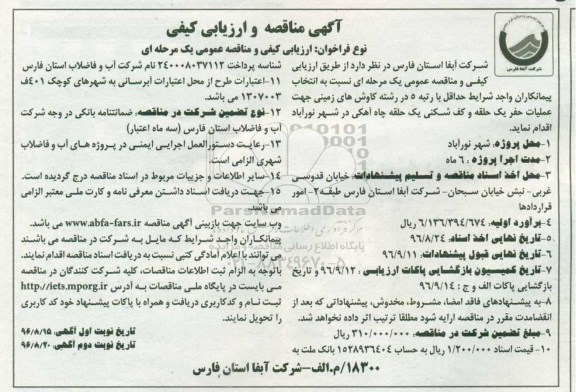 آگهی مناقصه و ارزیابی کیفی
نوع فراخوان: ارزیابی کیفی و مناقصه عمومی یک مرحله ای
شرکت آبفا فارس
شرکت آبفا استان فارس در نظر دارد از طریق ارزیابی
کیفی و مناقصه عمومی یک مرحله ای نسبت به انتخاب
پیمانکاران واجد شرایط حداقل با رتبه ۵ در رشته کاوش های زمینی جهت
عملیات حفر یک حلقه و کف شکنی یک حلقه چاه آهکی در شهر نورآباد
اقدام نماید.
۱-محل پروژه: شهر نورآباد
۲-مدت اجرا پروژه : ۶ ماه
۳-محل اخذ اسناد مناقصه و تسلیم پیشنهادات: خیابان قدوسی
غربی- نبش خیابان سبحان- شرکت آبفا استان فارس طبقه۲- امور
قراردادها
۴-برآورد اولیه: ۶/۱۳۶/۳۹۴/۶۷۴ ریال
۵-تاریخ نهایی اخذ اسناد: ۹۶/۸/۲۴
۶-تاریخ نهایی قبول پیشنهادات: ۹۶/۹/۱۱
۷-تاریخ کمیسیون بازگشایی پاکات ارزیابی : ۹۶/۹/۱۲ و تاریخ
بازگشایی پاکات الف و ج : ۹۶/۹/۱۴
۸-به پیشنهادهای فاقد امضا، مشروط، مخدوش، پیشنهاداتی که بعد از
انقضامدت مقرر در مناقصه ارایه شود مطلقا ترتیب اثر داده نخواهد شد.
۹-مبلغ تضمین شرکت در مناقصه: ۳۱۰/۰۰۰/۰۰۰ ریال
۱۰- قیمت اسناد ۱/۲۰۰/۰۰۰ ریال به حساب ۱۵۲۸۹۳۶۴۰۴ بانک ملت به
شناسه پرداخت ۲۴۰۰۰۸۰۳۷۱۱۲ نام شرکت آب و فاضلاب استان فارس
۱۱-اعتبارات طرح از محل اعتبارات آبرسانی به شهرهای کوچک ۴۰۱ف
۱۳۰۷۰۰۳ می باشد.
۱۲-نوع تضمین شرکت در مناقصه: ضمانتنامه بانکی در وجه شرکت
آب و فاضلاب استان فارس (سه ماه اعتبار)
۱۳-رعایت دستورالعمل اجرایی ایمنی در پروژه های آب و فاضلاب
شهری الزامی است.
۱۴-سایر اطلاعات و جزییات مربوط در اسناد مناقصه درج گردیده است.
۱۵-جهت دریافت اسناد داشتن معرفی نامه و کارت ملی معتبر الزامی
می باشد.
وب سایت جهت بازبینی آگهی مناقصه www.abfa-fars.ir می باشد.
پیمانکاران واجد شرایط که مایل به شرکت در مناقصه می باشند
می توانند با اعلام آمادگی کتبی نسبت به دریافت اسناد مناقصه اقدام نمایند.
باتوجه به الزام ثبت اطلاعات مناقصات، کلیه شرکت کنندگان در مناقصه
می بایست در پایگاه ملی مناقصات به آدرس http://iets.mporg.ir
ثبت نام و کدکاربری دریافت و همراه با پاکات پیشنهاد خود کد کاربری
را تحویل نمایند.
تاریخ نوبت اول آگهی: ۹۶/۸/۱۵
تاریخ نوبت دوم آگهی: ۹۶/۸/۲۰
۱۸۳۰۰/م.الف-شرکت آبفا استان فارس
ParsNamadData
پایگاه اطلاع رسانی مناقصه و مزایده
۰۲۱-۸۸۳۴۹۶۷۰-۵